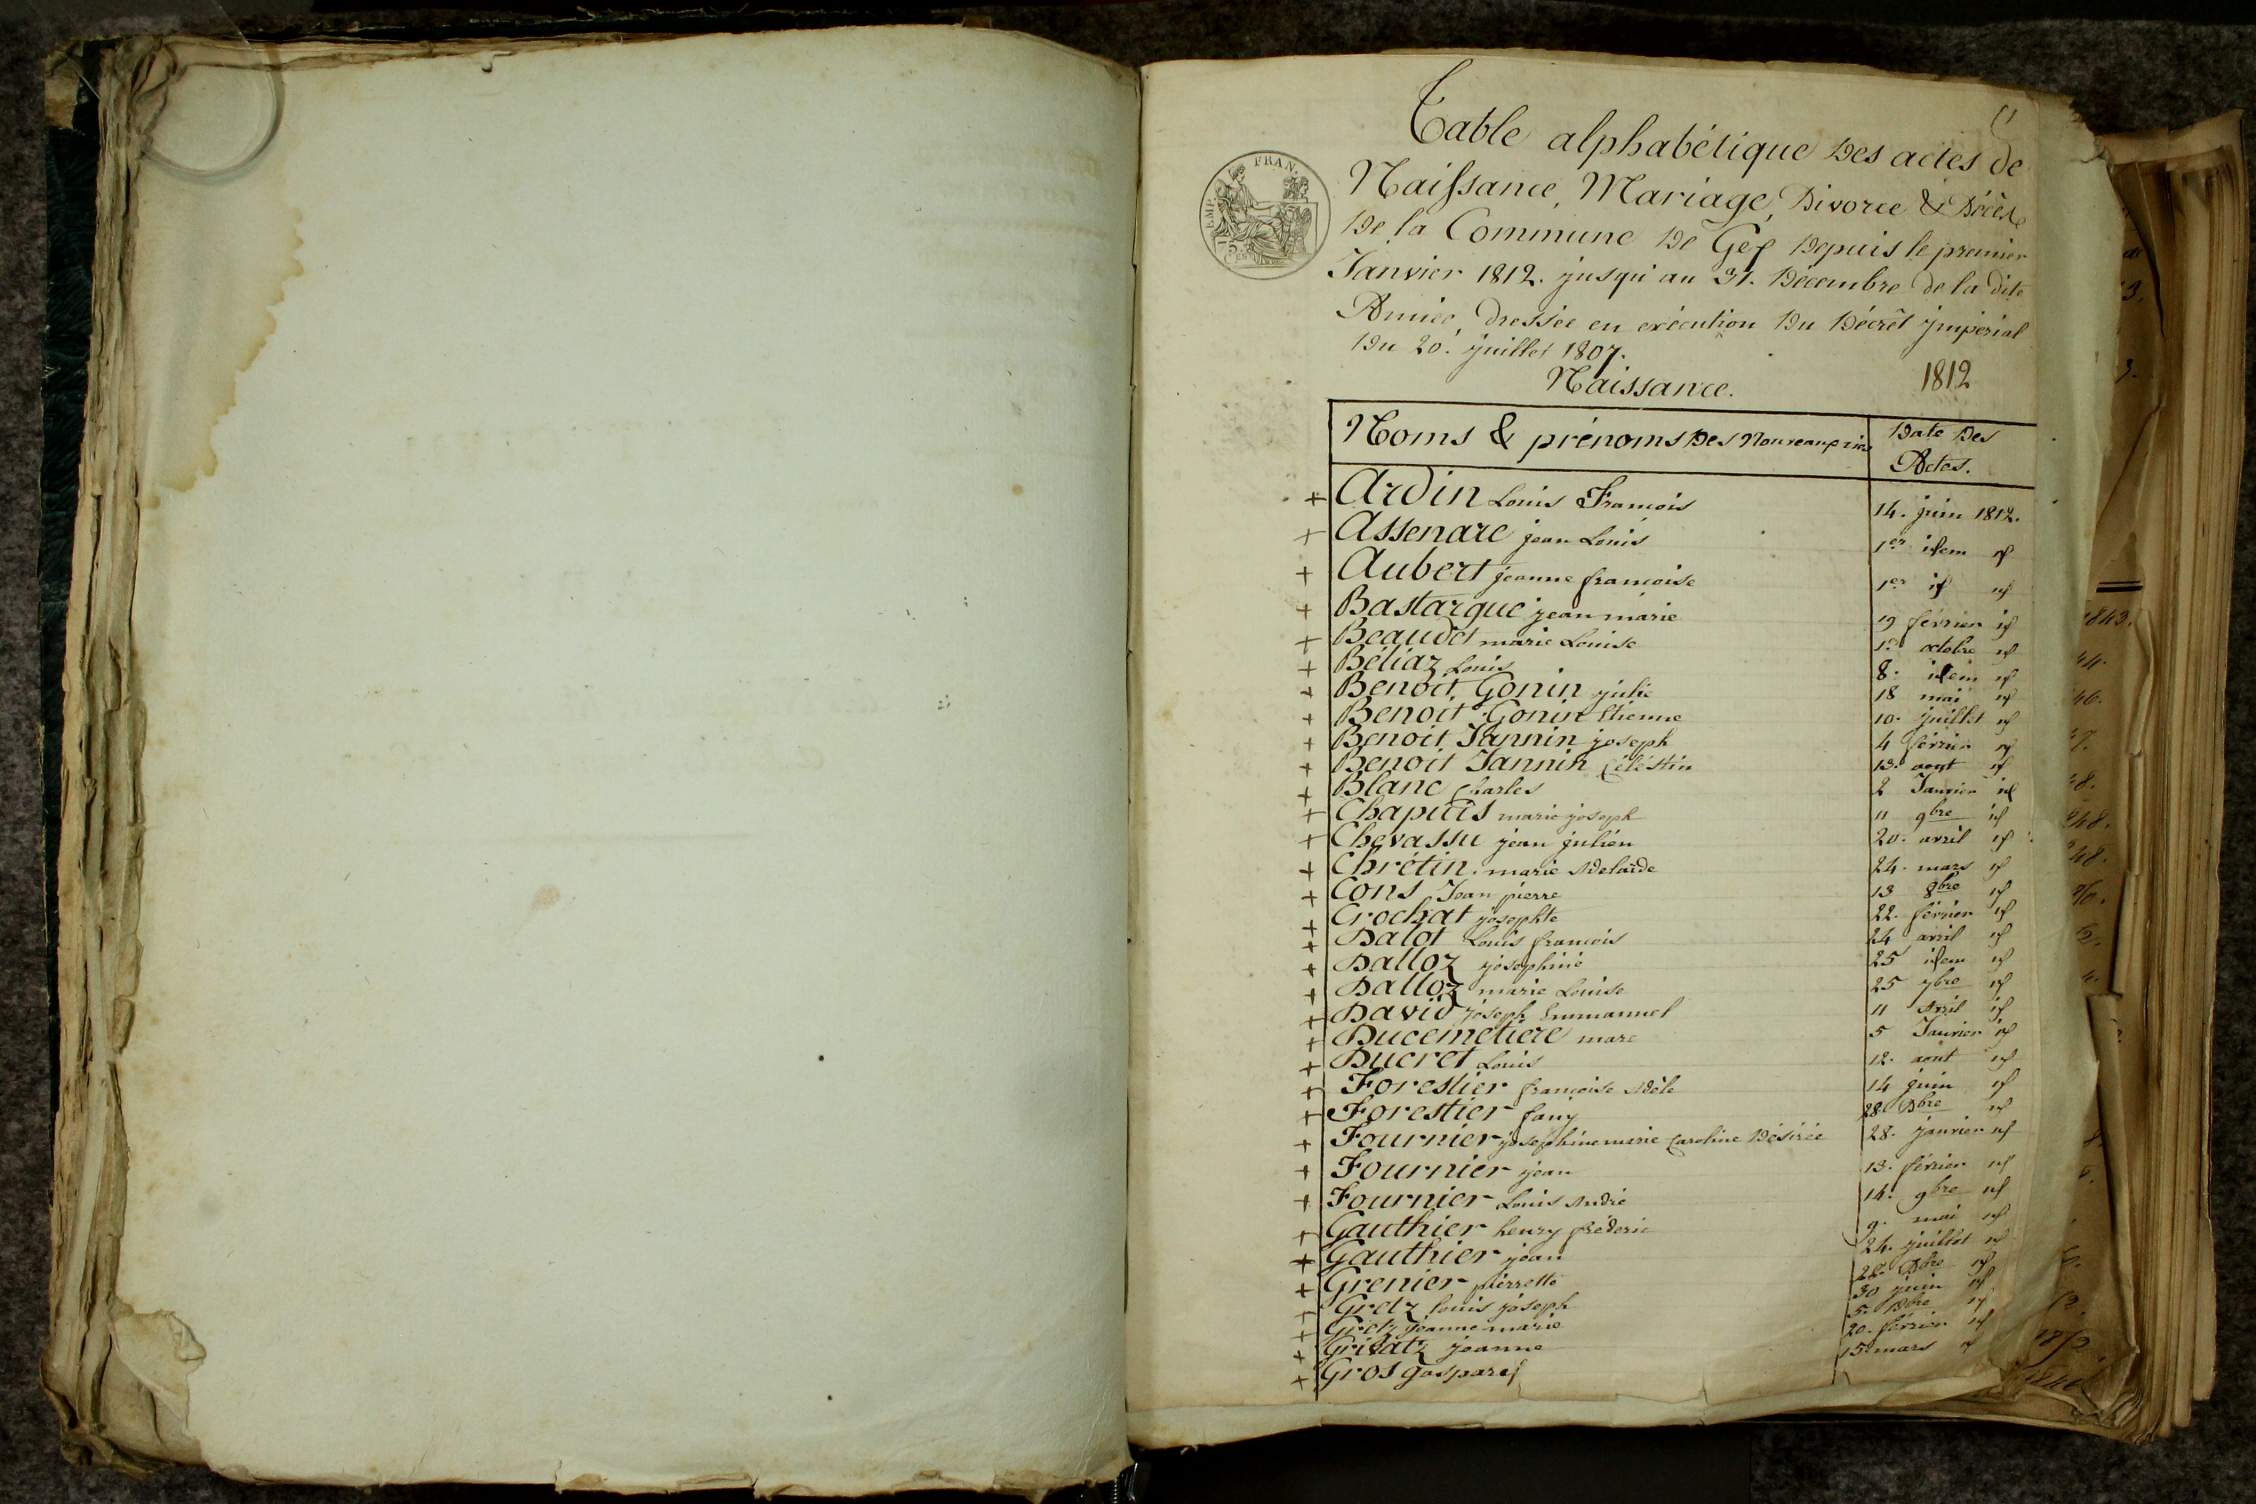 Table alphabétique Des actes de
Naissance, Mariage, Divorce & Décès
De la Commune De Gex Depuis le premier
Janvier 1812. jusqu'au 31. Décembre de la dite
Année, dressée en exécution Du Décrèt impérial
Du 20. juillet 1807.
EMP. FRAN.
Naissance. 1812
Noms & prénoms Des Nouveaux nés Date Des Actes.
+ Ardin Louis François 14. juin 1812.
+ Assenare jean Louis 1er idem id
+ Aubert jeanne françoise 1er id id
+ Bastarque jean marie 19 février id
+ Beaudet marie Louise 1er octobre id
+ Béliaz Louis 8. idem id
+ Benoit Gonin julie 18 mai id
+ Benoit Gonin Etienne 10. juillet id
+ Benoit Jannin joseph 4 février id
+ Benoit Jannin Céléstin 13. aout id
+ Blanc Charles 2 Janvier id
+ Chapuis marie joseph 11 9bre id
+ Chevassu jean julien 20. avril id
+ Chrétin marie Adelaïde 24. mars id
+ Cons Jean pierre 13 8bre id
+ Crochat josephte 22. février id
+ Dalot Louis françois 24 avril id
+ Dalloz joséphine 25 idem id
+ Dalloz marie Louise 25 7bre id
+ David joseph Emmanuel 11 Avril id
+ Ducemetiere marc 5 Janvier id
+ Ducret Louis 12. aout id
+ Forestier françoise Adèle 14 juin id
+ Forestier fany 28. Dbre id
+ Fournier joséphine marie Caroline Désirée 28. janvier id
+ Fournier jean 13. février id
+ Fournier Louis André 14. 9bre id
+ Gauthier henry fréderic 9. mai id
+ Gauthier jean 24. juillet id
+ Grenier pierrette 28. Dbre id
+ Gretz louis joseph 30 juin id
+ Gretz jeanne marie 5. Dbre id
+ Grivatz jeanne 20. février id
+ Gros gaspard 15 mars id